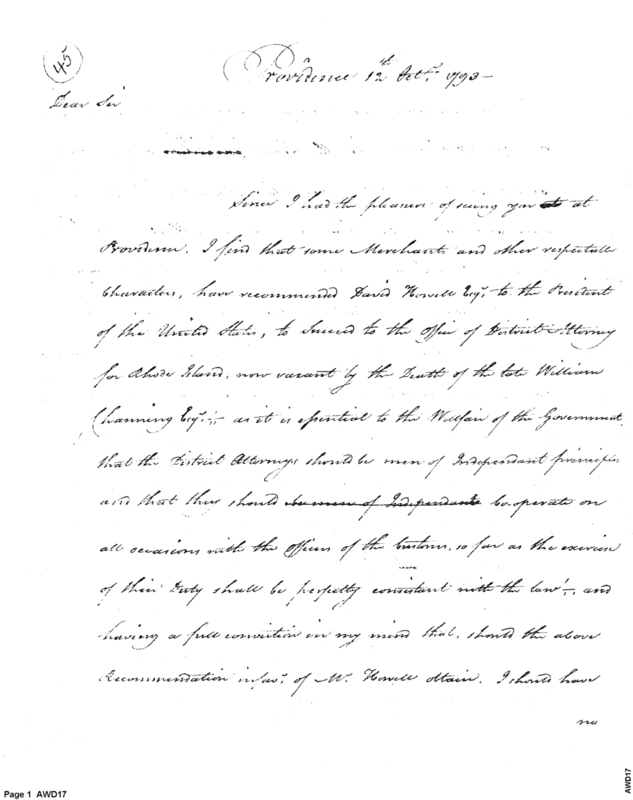 45
Providence 12th Octr. 1793 -
Dear Sir
Since I had the pleasure of seeing you at
Providence. I find that some Merchants and other respectable
Characters, have recommended David Howell Esqr. to the President
of the United States, to Succeed to the Office of District Attorney
for Rhode Island, now vacant by the Death of the late William
Channing Esqr. ;- as it is essential to the Welfair of the Government.
that the District Attorneys should be men of Independant principles
and that they should be men of Independants Co,operate on
all occasions with the Officers of the Customs, so far as the exercise
of their Duty shall be perfectly consistant with the law ;-, and
having a full conviction in my mind that, should the above
Recommendation in favr. of Mr. Howell obtain. I should have
no
Page 1 AWD17
AWD17